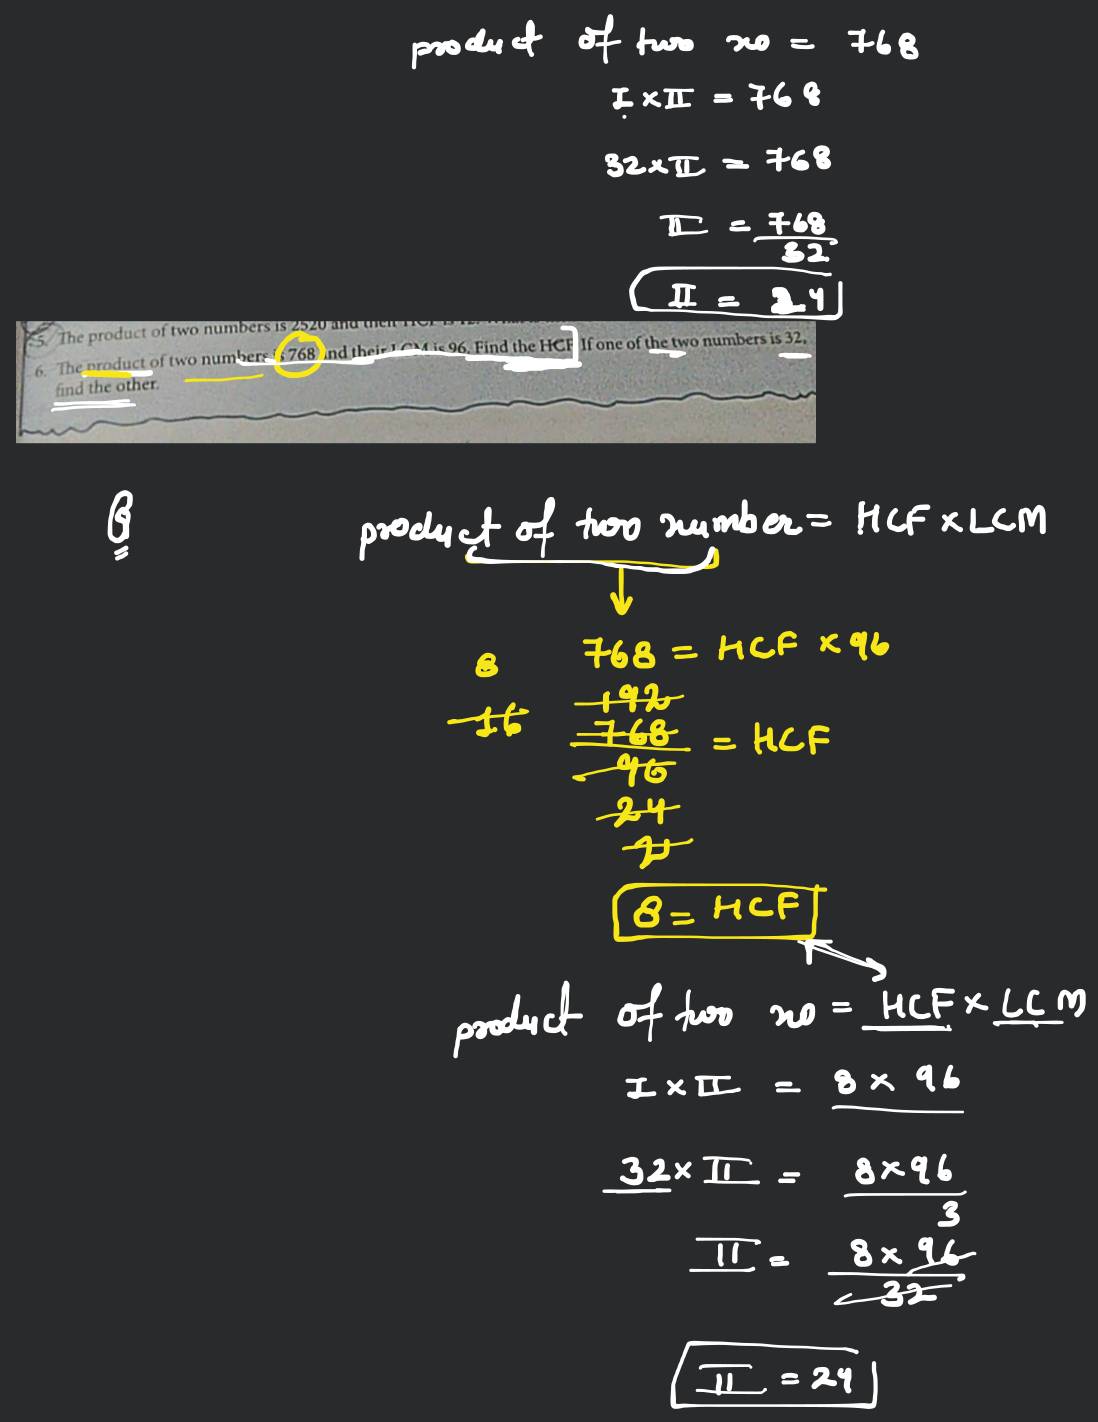 product of two no = 768
I × II = 768
32 × II = 768
II = 768
32
II = 24
5. The product of two numbers is 2520 and their HCF is 12.
6. The product of two numbers is 768 and their LCM is 96. Find the HCF. If one of the two numbers is 32,
find the other.
Q
product of two number = HCF × LCM
768 = HCF × 96
8
192
16
768 = HCF
96
24
2
8 = HCF
product of two no = HCF × LCM
I × II = 8 × 96
32 × II = 8 × 96
3
II = 8 × 96
32
II = 24